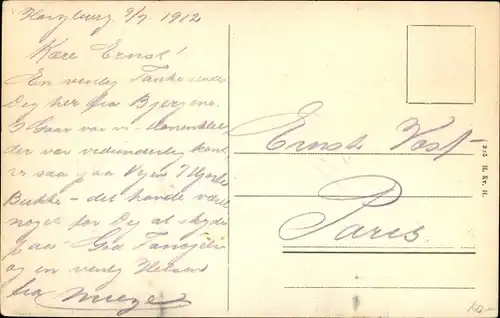 Harzburg 9/7 1912
Kære Ernst!
En venlig Tanke sendes
Dig her fra Bjergene.
I Gaar var vi
der var vidunderlig
vi saa paa Vejen 7 Hjorte
Bukke - det havde været
noget for Dig at skyde
paa
og en venlig Hilsen
fra
Ernst Vest-
Paris.
H. Kr. H.